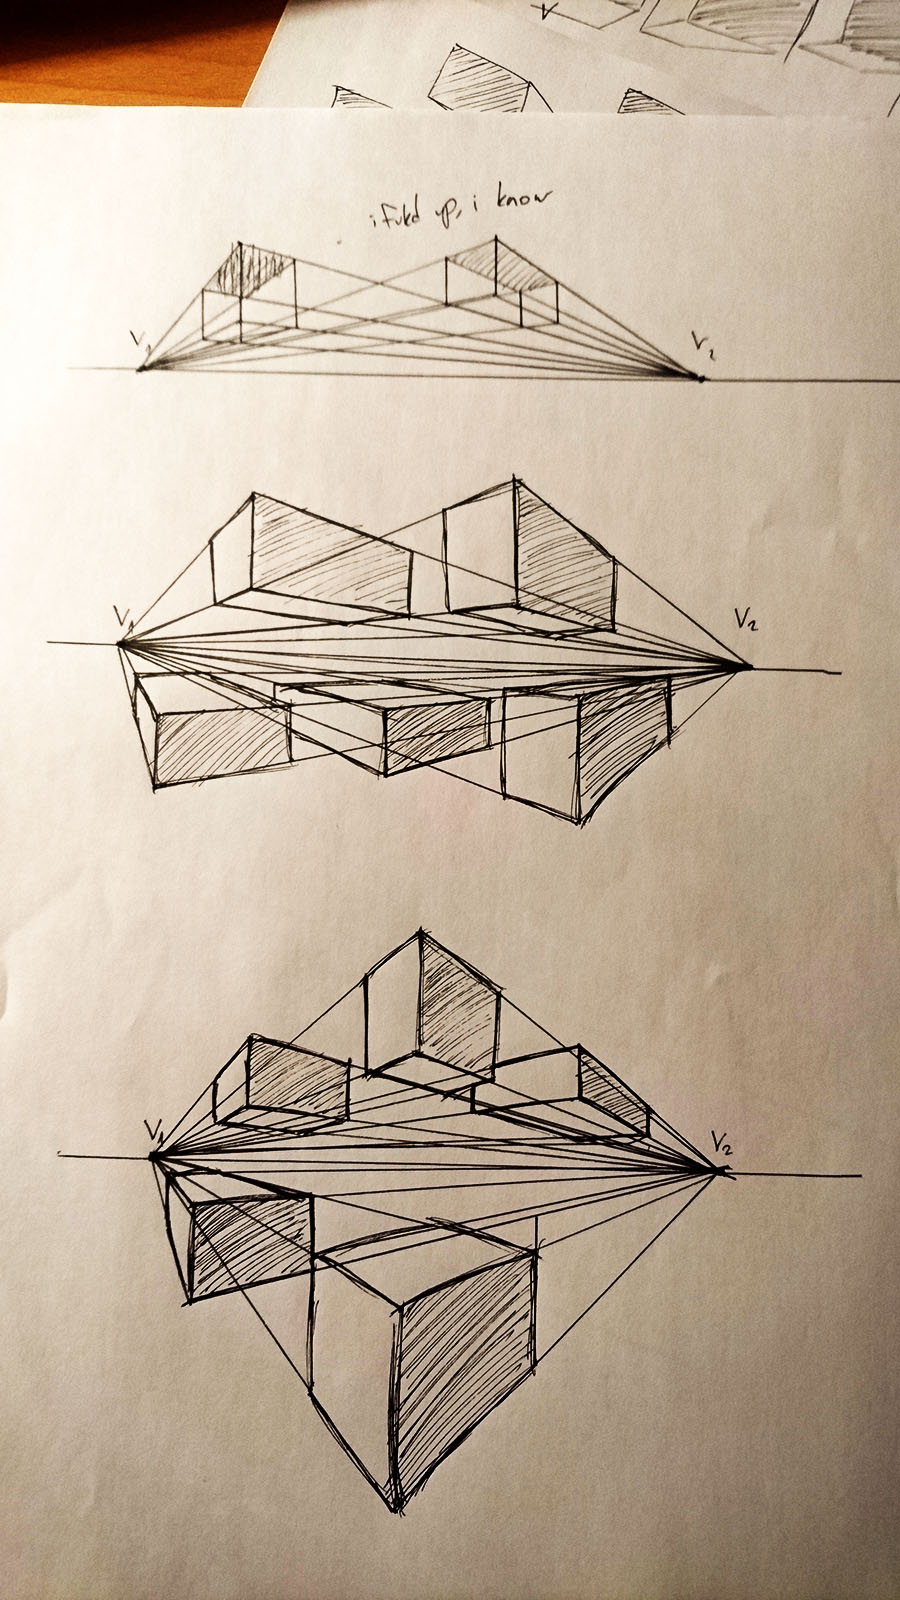 i fukd up, i know
V₁
V₂
V₁
V₂
V₁
V₂